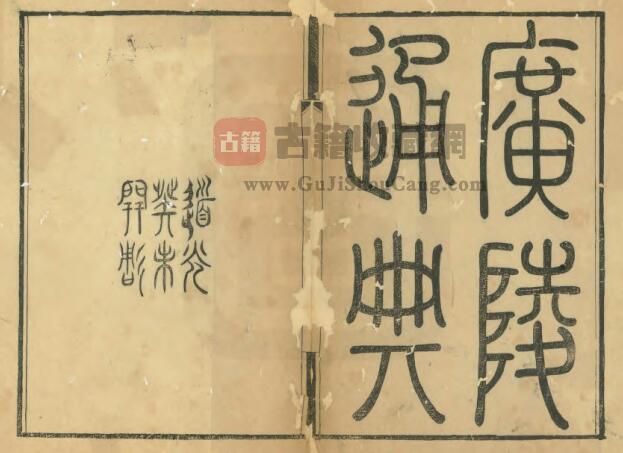 廣陵
通典
道光
癸未
開雕
古籍
古籍收藏網
www.GuJiShouCang.com